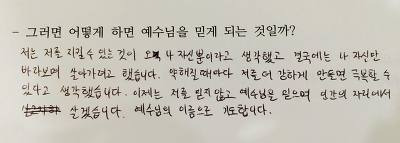 - 그러면 어떻게 하면 예수님을 믿게 되는 것일까?
저는 저를 지킬 수 있는 것이 오직 나 자신뿐이라고 생각했고 결국에는 나 자신만
바라보며 살아가려고 했습니다. 약해질때마다 저를 더 강하게 만들면 극복할 수
있다고 생각했습니다. 이제는 저를 믿지 않고 예수님을 믿으며 인간의 자리에서
살겠습니다. 예수님의 이름으로 기도합니다.